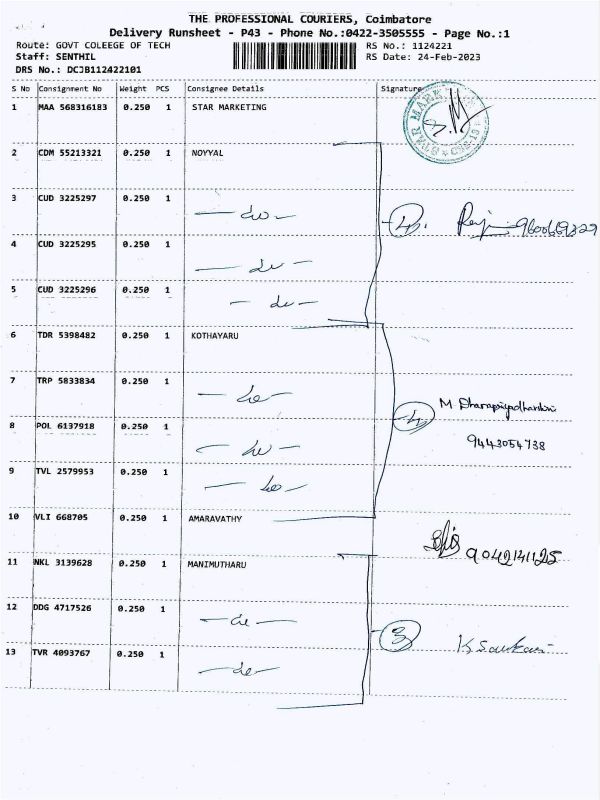 THE PROFESSIONAL COURIERS, Coimbatore
Delivery Runsheet - P43 - Phone No.:0422-3505555 - Page No.:1
Route: GOVT COLEEGE OF TECH
RS No.: 1124221
Staff: SENTHIL
RS Date: 24-Feb-2023
DRS No.: DCJB112422101
S No Consignment No Weight PCS Consignee Details Signature
1 MAA 568316183 0.250 1 STAR MARKETING
2 CDM 55213321 0.250 1 NOYYAL
3 CUD 3225297 0.250 1
4 CUD 3225295 0.250 1
5 CUD 3225296 0.250 1
6 TDR 5398482 0.250 1 KOTHAYARU
7 TRP 5833834 0.250 1
8 POL 6137918 0.250 1
9443054738
9 TVL 2579953 0.250 1
10 VLI 668705 0.250 1 AMARAVATHY
9042141125
11 NKL 3139628 0.250 1 MANIMUTHARU
12 DDG 4717526 0.250 1
3
13 TVR 4093767 0.250 1